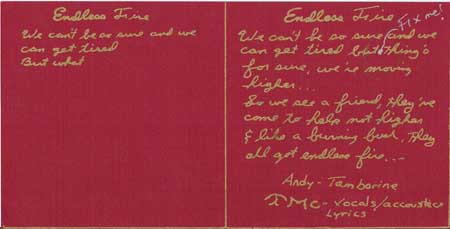 Endless Fire
We can't be so sure and we
can get tired
But what
Endless Fire
Fix me!
We can't be so sure and we
can get tired but thing's
for sure, we're moving
higher...
So we see a friend, they're
come to help not higher
& like a burning bush, they
all got endless fire...
Andy - Tamborine
TMc - vocals/accoustics
Lyrics